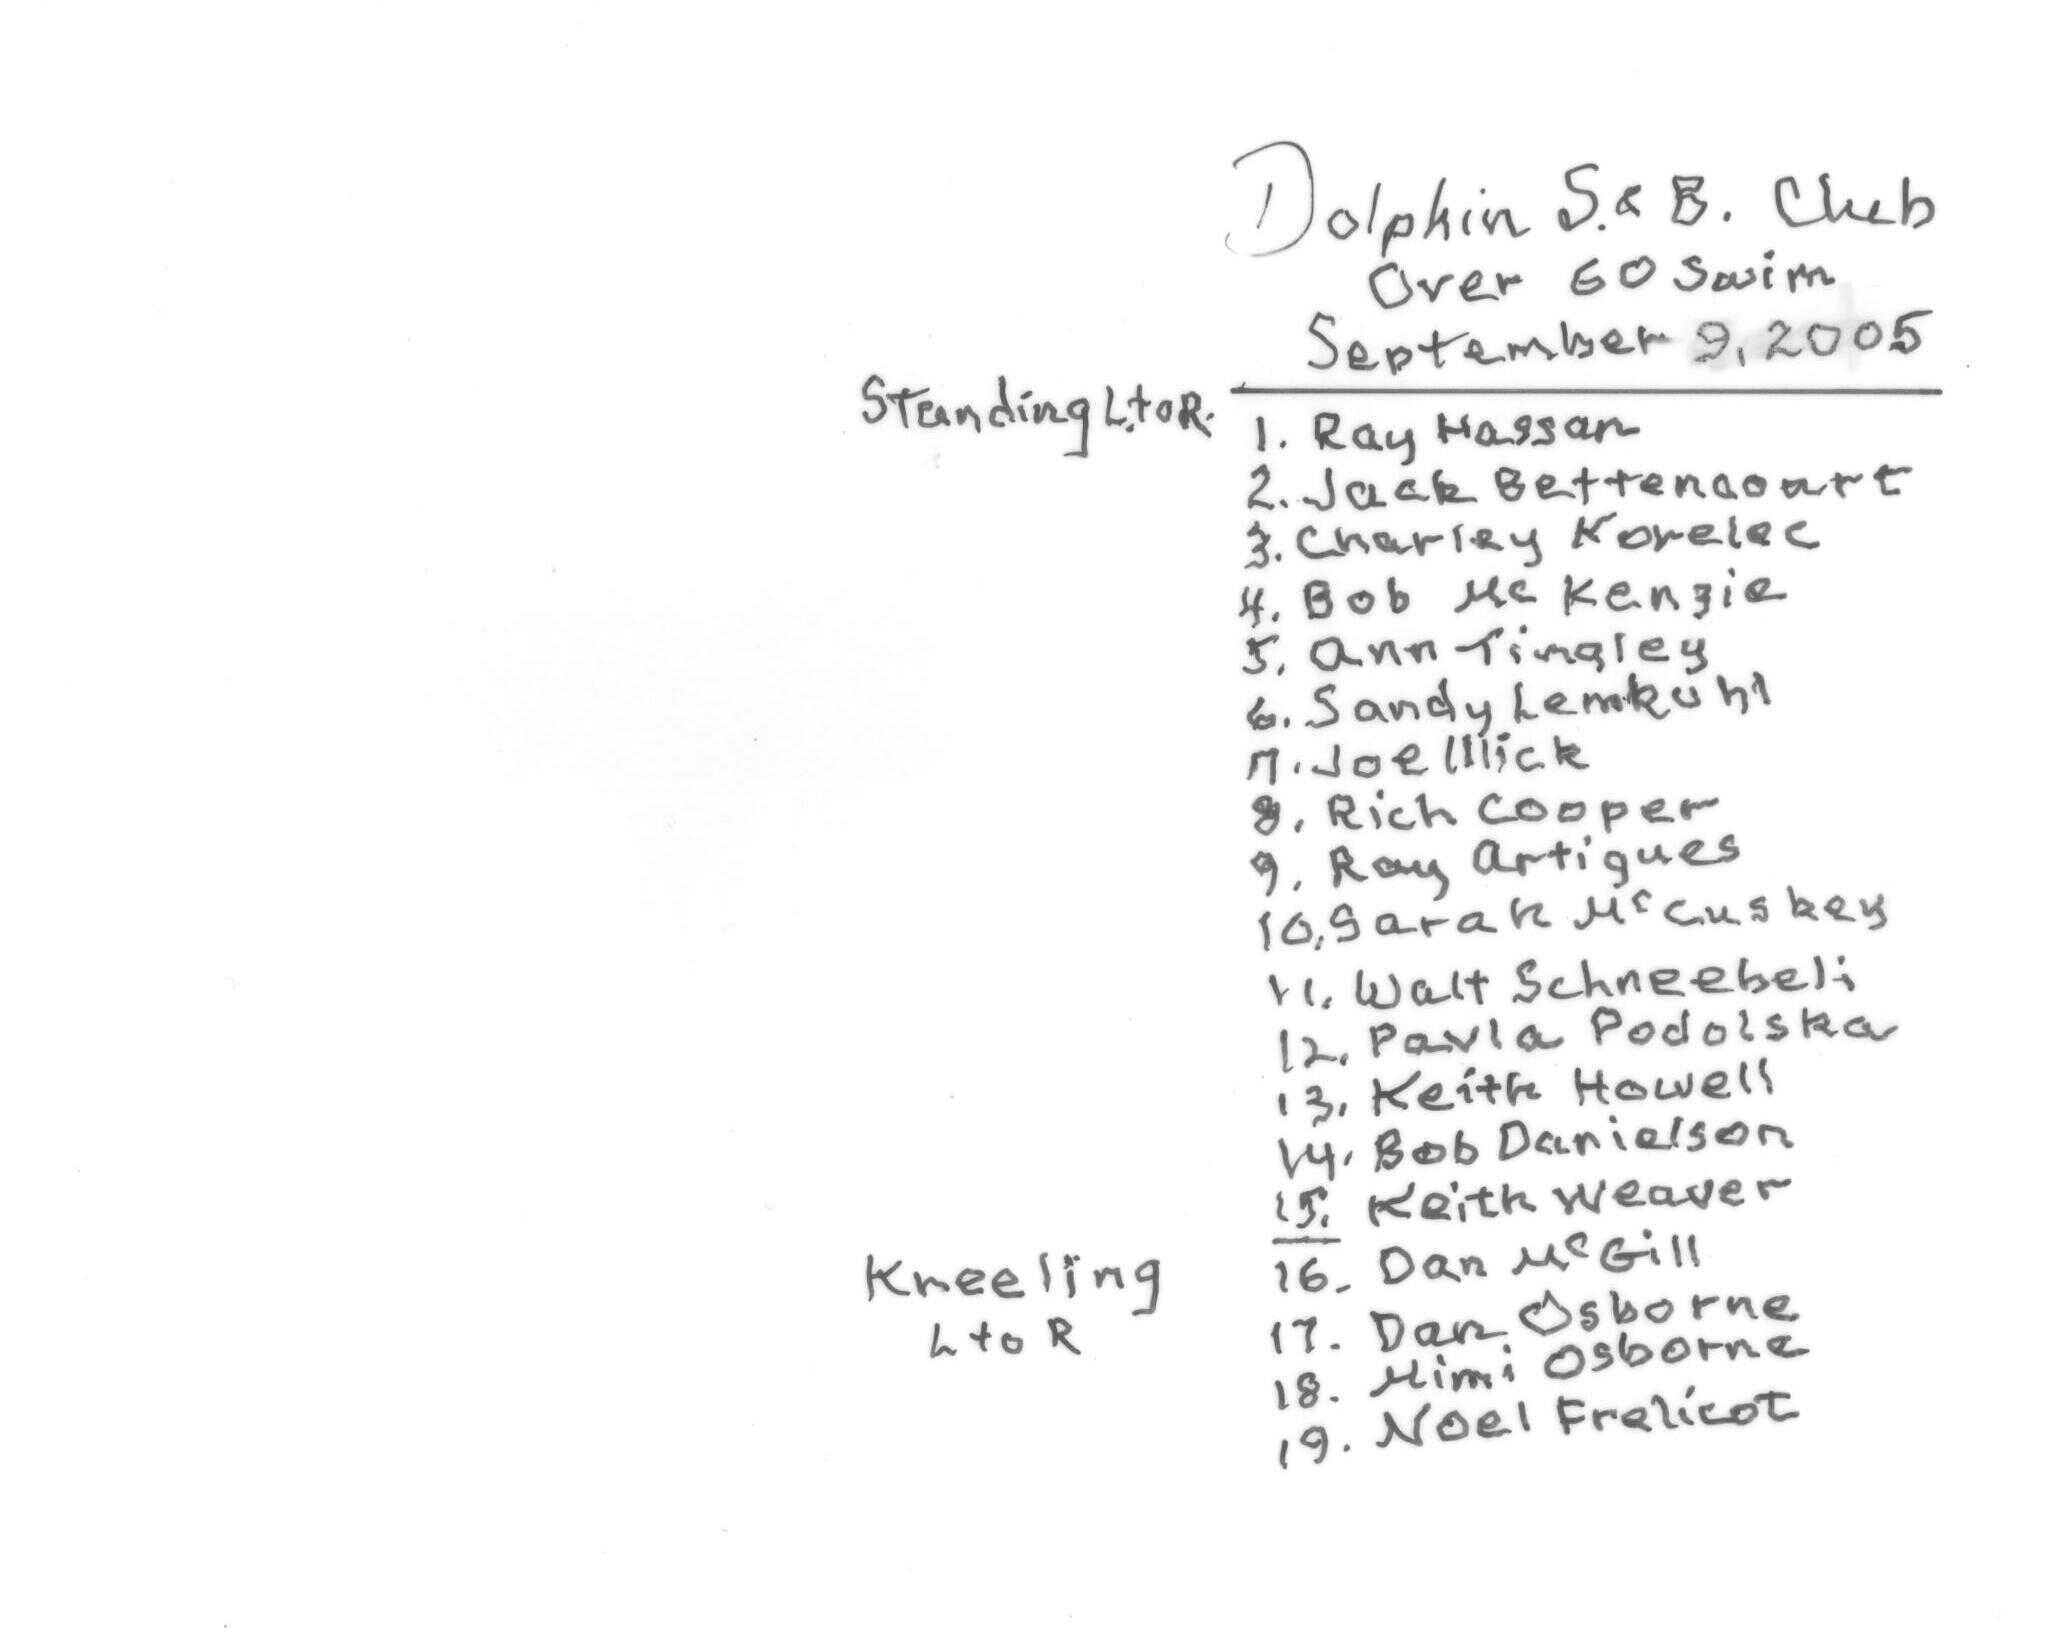 Dolphin S. & B. Club
Over 60 Swim
September 9, 2005
Standing L. to R.
1. Ray Hassan
2. Jack Bettencourt
3. Charley Korelec
4. Bob Mc Kenzie
5. Ann Tingley
6. Sandy Lemkuhl
7. Joe Illick
8. Rich Cooper
9. Ray Artigues
10. Sarah McCuskey
11. Walt Schneebeli
12. Pavla Podolska
13. Keith Howell
14. Bob Danielson
15. Keith Weaver
Kneeling
L to R
16. Dan McGill
17. Dan Osborne
18. Mimi Osborne
19. Noel Frelicot